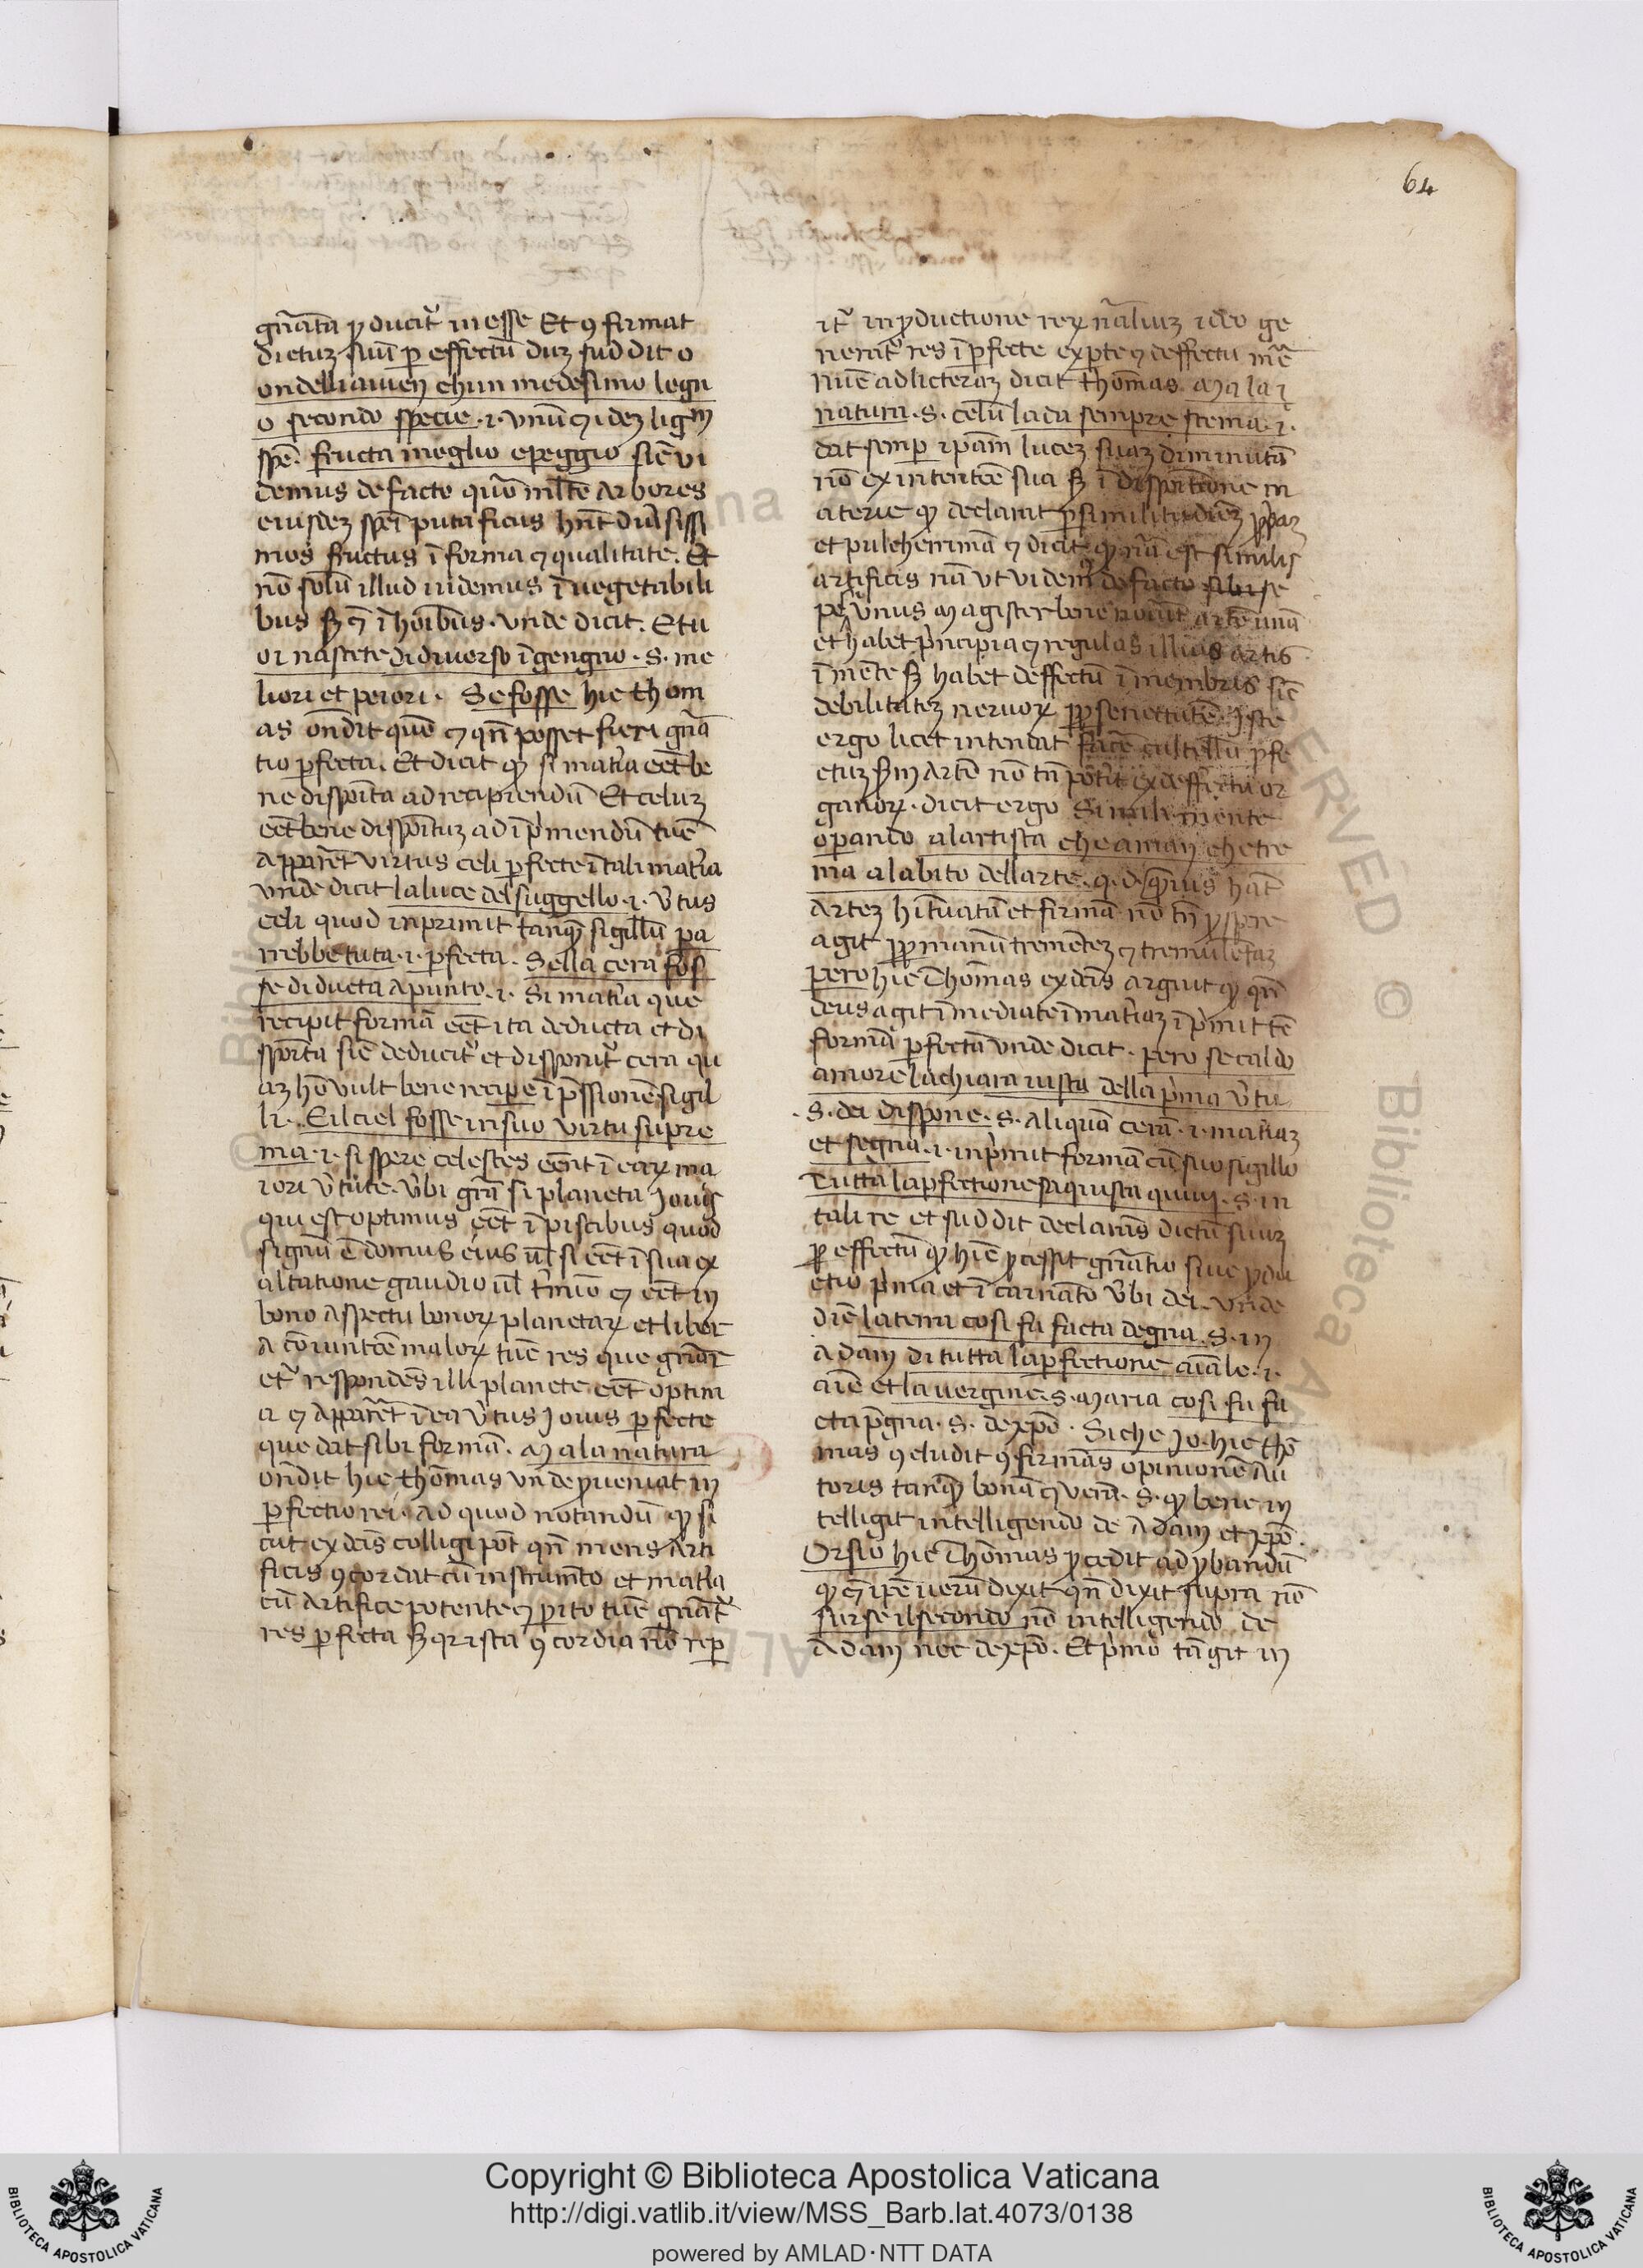 64
gn̄ata ꝓducit᷑ in esse Et ꝯfirmat
dictuꝫ suū ꝑ effectū duꝫ suddit o
ondelli auien chun medesimo legn
o secondo specie .i. vnū ⁊ ideꝫ lignͫ
spē. fructa meglio epeggio sic̄ vi
demus de facto quō ml̄te Arbores
eiusdeꝫ spēi puta ficus hn̄t diu̾sissi
mos fructus ī forma ⁊ qualitate. Et
nō solū illud uidemus ī uegetabili
bus sꝫ ⁊ ī hoībus. vnde dicit. Etu
oi nascete di diuerso īgengno .S. me
liori et peiori. Se fosse hic thom
as ondit quō ⁊ qn̄ posset fieri gn̄a
tio ꝑfecta. Et dicit qꝫ si matia eēt be
ne disposita ad recipiendū Et celuꝫ
eēt bene dispositꝫ ad īpͥmendū tūc
Apparēt virtus celi ꝑfecte ī tali matia
vnde dicit la luce del suggello .i. v̾tus
celi quod inprimit tanqꝫ sigillū pa
rrebbe tuta .i. ꝑfecta. Sella cera fos
se di ducta Apunto .i. Si matia que
recipit formā eēt ita deducta et di
sposita sic̄ deducit᷑ et disponit᷑ cera qu
aꝫ hō vult bene recipe īpressionē sigil
li. Eil ciel fosse in suo virtu supre
ma .i. si spere celestes eēnt ī eaꝝ ma
iori v̾tute. v̾bi grā si planeta Jouis
qui est optimus eēt ī piscibus quod
signū ē domus eius ul̄ si eēt ī sua ex
altatione gaudio ul̄ t̾mīo ⁊ eēt in
bono Aspectu bonoꝝ planetaꝝ et liber
A cōiunctōe maloꝝ tūc res que gn̄ar
et᷑ respondēs illi planete eēt optim
a ⁊ Apparēt ī ea v̾tus Jouis ꝑfecte
que dat sibi formā. Ma la natura
ondit hic thomas vnde ꝓueniat in
ꝑfectio rei. Ad quod notandū qꝫ si
cut ex dc̄is colligi pōt qn̄ mens Arti
ficis ꝯcordat cū instrumēto et matia
cū Artifice potente ⁊ ꝑito tūc gn̄at᷑
res ꝑfecta sꝫ qꝛ ista ꝯcordia nō reꝑ
it᷑ in ꝓductione reꝝ nāliuꝫ ideo ge
nerat᷑ res īꝑfecte ex ꝑte ⁊ deffectu mā
nūc ad licteraꝫ dicit thomas. Ma la ī
natura .S. celū la da sempre scema .i.
dat semꝑ ipam lucez suaꝫ diminutā
nō ex intentōe sua sꝫ ī dispōitione m
aterie qꝫ declarat ꝑ similitudinē ꝓpaꝫ
et pulcherrimā ⁊ dicit qꝫ nā est similis
artificis nā vt videmꝰ de facto sibi se
pe vnus magister bene nouit artē unā
et habet pͥncipia ⁊ regulas illius artis
ī mente sꝫ habet deffectū ī membris sic̄
debilitateꝫ neruoꝝ ꝓpꝑ senectutē. Iste
ergo licet intendat facē cultellū ꝑfe
ctuꝫ sm̄ Artē nō tn̄ potit ex deffectu or
ganoꝝ. dicit ergo Simili mente
oꝑando alartista che aman che tre
ma alabito dellarte .q.d. qͣuis hāt
Arteꝫ hituatā et firmā nō tn̄ ꝓspere
agit ꝓpꝑ manū tremēteꝫ ⁊ tremulētaꝫ
pero hic Thomas ex dc̄is arguit qꝫ qn̄
deus agit īmediate ī matiaꝫ īpͥmit tē
formā ꝑfectā vnde dicit. pero se caldo
amore la chiara uista della pͥma v̾tu
.S. dei dispone .S. Aliquā cera .i. matiaꝫ
et segna .i. inpͥmit formā cū suo sigillo
Tutta la ꝑfectione si aquista quiui .S. in
tali re et suddit declarās dictū suuꝫ
ꝑ effectū qꝫ hic ꝓcessit gn̄atio siue ꝓdu
ctio pͥma et īcarnatō v̾bi dei. vnde
dic̄ la terra cosi fu facta degna .S. in
Adam di tutta la ꝑfectione aīale .i.
aīe et la uergine .S. Maria cosi fu fa
cta p̄gna .S. de xp̄o. Siche Jo hic tho
mas ꝯcludit ꝯfirmās opinionē Au
toris tanqꝫ bonā ⁊ verā .S. qꝫ bene in
telligit intelligendo de Adam et xp̄o.
Or sio hic Thomas ꝓcedit ad ꝓbandū
qꝫ ⁊ ipē uerū dixit qn̄ dixit supra nō
surse il secondo nō intelligendo de
Adam nec de xp̄o. Et pͥmo tāgit in
Copyright © Biblioteca Apostolica Vaticana
http://digi.vatlib.it/view/MSS_Barb.lat.4073/0138
powered by AMLAD·NTT DATA
BIBLIOTECA APOSTOLICA VATICANA
BIBLIOTECA APOSTOLICA VATICANA